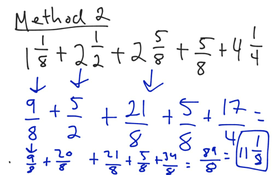 Method 2
1 1/8 + 2 1/2 + 2 5/8 + 5/8 + 4 1/4
9/8 + 5/2 + 21/8 + 5/8 + 17/4 =
9/8 + 20/8 + 21/8 + 5/8 + 34/8 = 89/8 = 11 1/8